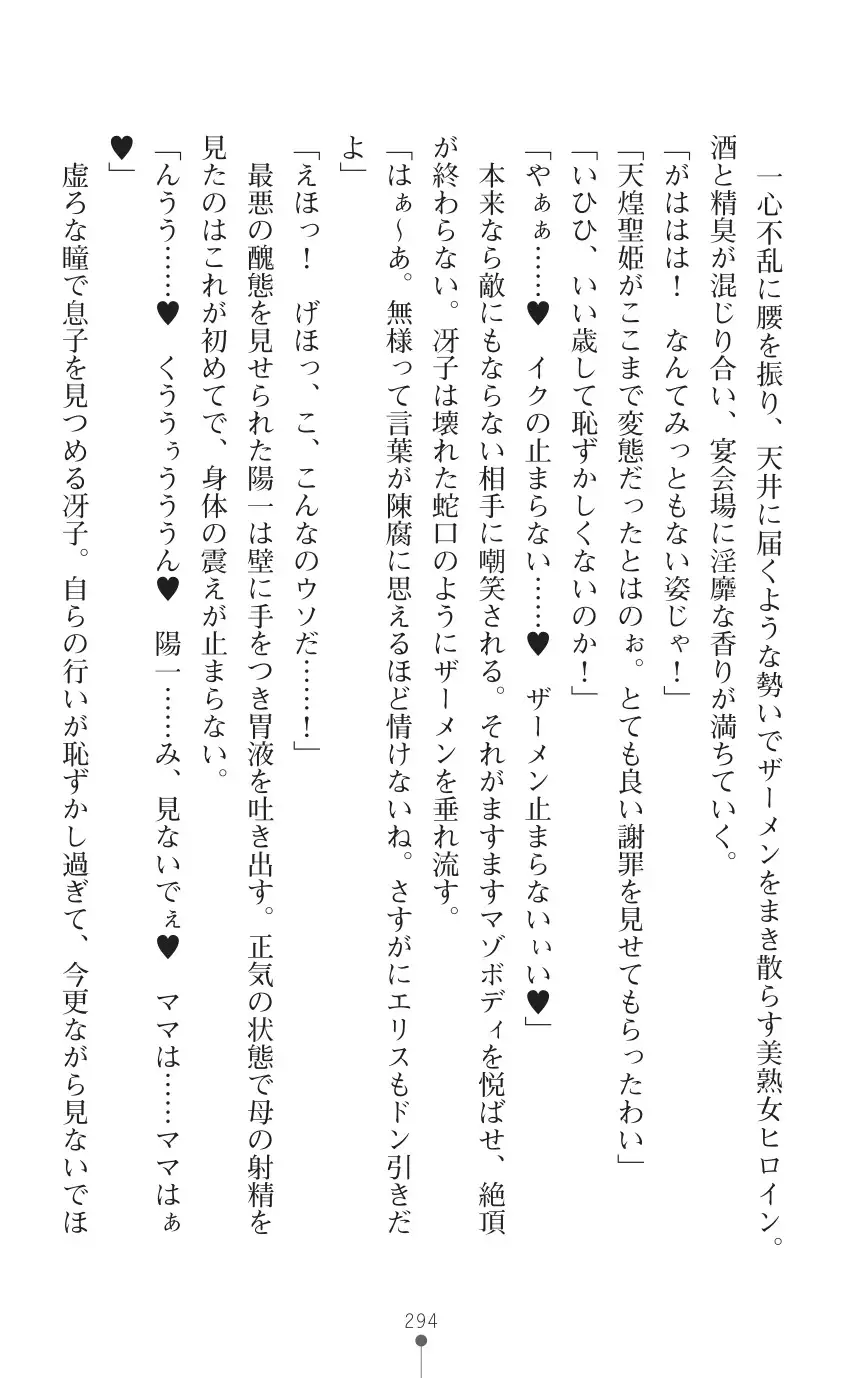 一心不乱に腰を振り、天井に届くような勢いでザーメンをまき散らす美熟女ヒロイン。
酒と精臭が混じり合い、宴会場に淫靡な香りが満ちていく。
「がははは！　なんてみっともない姿じゃ！」
「天煌聖姫がここまで変態だったとはのぉ。とても良い謝罪を見せてもらったわい」
「いひひ、いい歳して恥ずかしくないのか！」
「やぁぁ……♥　イクの止まらない……♥　ザーメン止まらないぃい♥」
本来なら敵にもならない相手に嘲笑される。それがますますマゾボディを悦ばせ、絶頂
が終わらない。冴子は壊れた蛇口のようにザーメンを垂れ流す。
「はぁ～あ。無様って言葉が陳腐に思えるほど情けないね。さすがにエリスもドン引きだ
よ」
「えほっ！　げほっ、こ、こんなのウソだ……！」
最悪の醜態を見せられた陽一は壁に手をつき胃液を吐き出す。正気の状態で母の射精を
見たのはこれが初めてで、身体の震えが止まらない。
「んうう……♥　くううぅうううん♥　陽一……み、見ないでぇ♥　ママは……ママはぁ
♥」
虚ろな瞳で息子を見つめる冴子。自らの行いが恥ずかし過ぎて、今更ながら見ないでほ
294